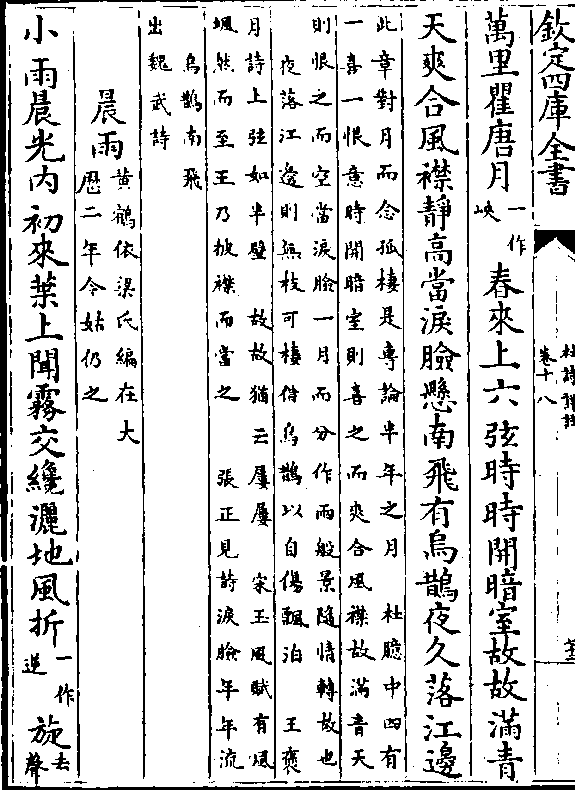 欽定四庫全書
杜詩詳註
卷十八
萬里瞿唐月一作峽春來上六弦時時開暗室故故滿青
天爽合風襟靜高當淚臉懸南飛有烏鵲夜久落江邊
此章對月而念孤棲是專論半年之月　杜臆中四有
一喜一恨意時開暗室則喜之而爽合風襟故滿青天
則恨之而空當淚臉一月而分作兩般景隨情轉故也
夜落江邊則無枝可棲借烏鵲以自傷飄泊　王褒
月詩上弦如半璧　故故猶云屢屢　宋玉風賦有風
颯然而至王乃披襟而當之　張正見詩淚臉年年流
烏鵲南飛
出魏武詩
晨雨黃鶴依梁氏編在大
曆二年今姑仍之
小雨晨光內初來葉上聞霧交纔灑地風折一作逆旋去聲